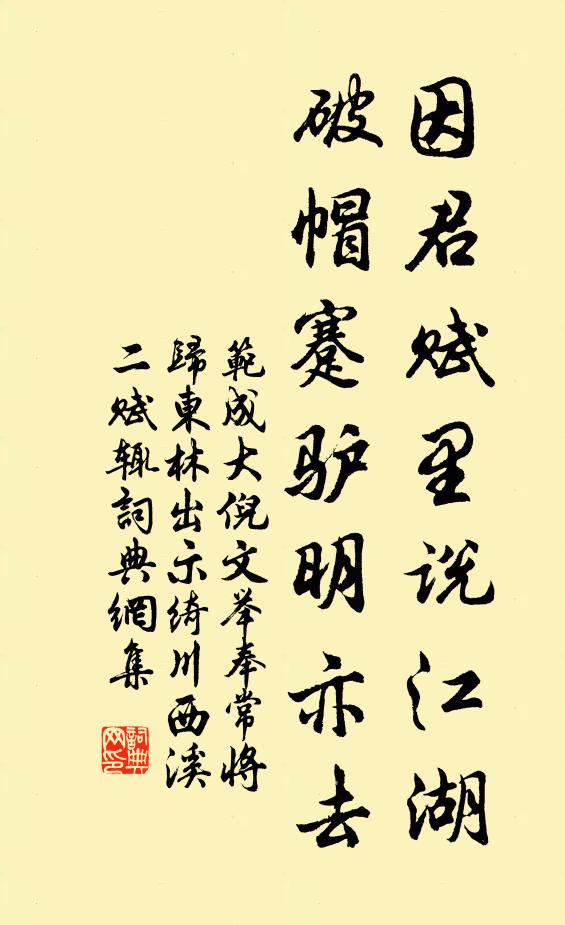 因君赋里说江湖
破帽蹇驴明亦去
範成大倪文举奉常将
歸東林出示绮川西溪
二赋辄詞典網集
詞典
网印